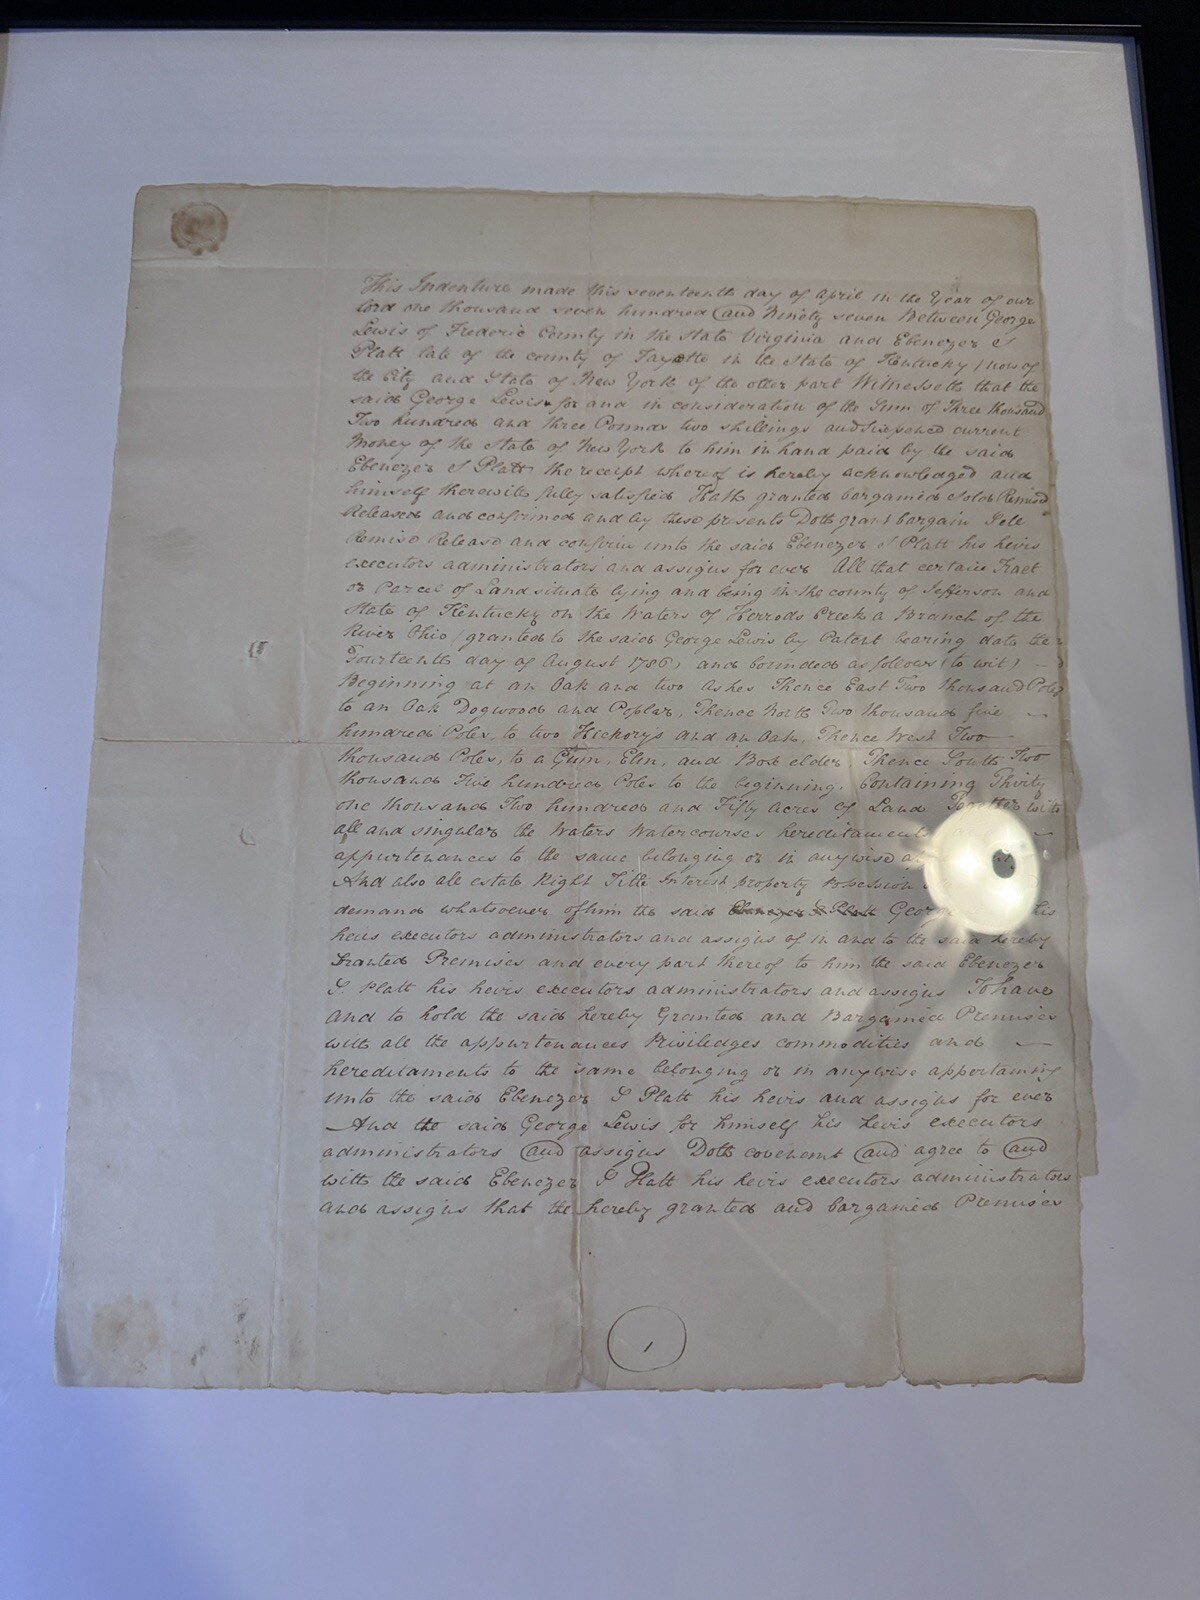 This Indenture made this seventeenth day of April in the Year of our
lord one thousand seven hundred and Ninety seven Between George
Lewis of Frederic County in the State Virginia and Ebenezer S
Platt late of the county of Fayette in the State of Kentucky / now of
the City and State of New York of the other part Witnesseth that the
said George Lewis for and in consideration of the Sum of Three thousand
Two hundred and three Pounds two shillings and sixpence current
Money of the State of New York to him in hand paid by the said
Ebenezer S Platt the receipt whereof is hereby acknowledged and
himself therewith fully satisfied Hath granted bargained Sold Remised
Released and confirmed and by these presents Doth grant bargain Sell
Remise Release and confirm unto the said Ebenezer S Platt his heirs
executors administrators and assigns for ever All that certain Tract
or Parcel of Land situate lying and being in the county of Jefferson and
State of Kentucky on the Waters of Herrods Creek a Branch of the
River Ohio / granted to the said George Lewis by Patent bearing date the
Fourteenth day of August 1786 / and bounded as follows (to wit) —
Beginning at an Oak and two Ashes Thence East Two thousand Poles
to an Oak Dogwood and Poplar, Thence North Two thousand five —
hundred Poles, to two Hickory's and an Oak, Thence West Two —
thousand Poles, to a Gum, Elm, and Box elder Thence South Two
thousand Five hundred Poles to the beginning. Containing Thirty
one thousand Two hundred and Fifty Acres of Land Together with
all and singular the Waters Watercourses hereditaments —
appurtenances to the same belonging or in anywise
And also all estate Right Title Interest property Possession
demand whatsoever of him the said Ebenezer S Platt George his
heirs executors administrators and assigns of in and to the said hereby
Granted Premises and every part thereof to him the said Ebenezer
S. Platt his heirs executors administrators and assigns To have
and to hold the said hereby Granted and Bargained Premises
with all the appurtenances Priviledges commodities and —
hereditaments to the same belonging or in anywise appertaining
unto the said Ebenezer S Platt his heirs and assigns for ever
And the said George Lewis for himself his heirs executors
administrators and assigns Doth covenant and agree to and
with the said Ebenezer S Platt his heirs executors administrators
and assigns that the hereby granted and bargained Premises
1